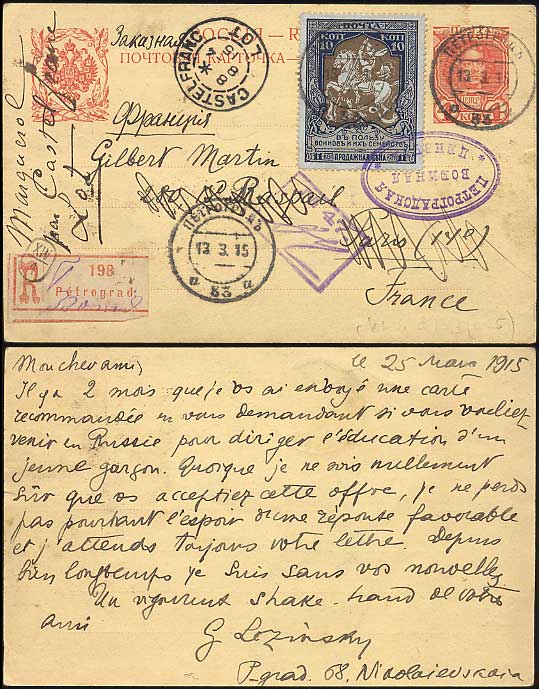 Заказная
РОССІЯ
ПОЧТОВАЯ КАРТОЧКА
CASTELFRANC
LOT
ПОЧТА
КОП 10
10 КОП
ВЪ ПОЛЬЗУ
ВОИНОВЪ И ИХЪ СЕМЕЙСТВЪ
ПЕТРОГРАДЪ
13.3.15
33
КОП
Франція
Gilbert Martin
Bd Raspail
Paris (XIVe)
France
Castelfranc
par
Lot
ПЕТРОГРАДСКАЯ
ВОЕННАЯ
ПЕТРОГРАДЪ
13.3.15
33
R
198
Pétrograd
le 25 Mars 1915
Mon cher ami,
Il y a 2 mois que je vs ai envoyé une carte
recommandée en vous demandant si vous vouliez
venir en Russie pour diriger l'éducation d'un
jeune garçon. Quoique je ne sois nullement
sûr que vs acceptiez cette offre, je ne perds
pas pourtant l'espoir d'une réponse favorable
et j'attends toujours votre lettre. Depuis
bien longtemps je suis sans vos nouvelles
Un vigoureux shake-hand de votre
ami
G Lozinsky
P-grad. 68, Nicolaievskaia